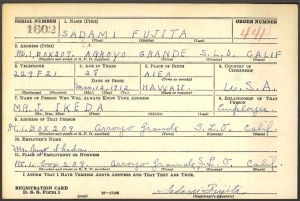 SERIAL NUMBER 1. NAME (Print) ORDER NUMBER
1602 SADAMI FUJITA 441
2. ADDRESS (Print)
RT. 1 BOX 209. ARROYO GRANDE S.L.O. CALIF
3. TELEPHONE 4. AGE IN YEARS 5. PLACE OF BIRTH 6. COUNTRY OF CITIZENSHIP
229F21 28 AIEA
DATE OF BIRTH
1912 HAWAII U.S.A.
7. NAME OF PERSON WHO WILL ALWAYS KNOW YOUR ADDRESS 8. RELATIONSHIP OF THAT PERSON
MR. J. IKEDA Employer
9. ADDRESS OF THAT PERSON
RT. 1 BOX 209 Arroyo Grande S.L.O. Calif.
10. EMPLOYER'S NAME
Mr. Ikeda
11. PLACE OF EMPLOYMENT OR BUSINESS
Box 209 Arroyo Grande S.L.O. Calif.
I AFFIRM THAT I HAVE VERIFIED ABOVE ANSWERS AND THAT THEY ARE TRUE.
REGISTRATION CARD
D. S. S. Form 1 Sadami Fujita